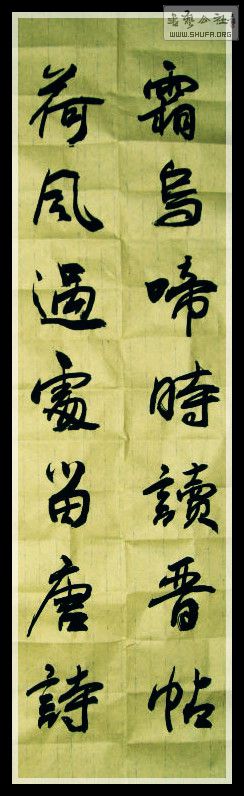 霜烏啼時讀晋帖
荷風過處留唐詩
书艺公社
WWW.SHUFA.ORG